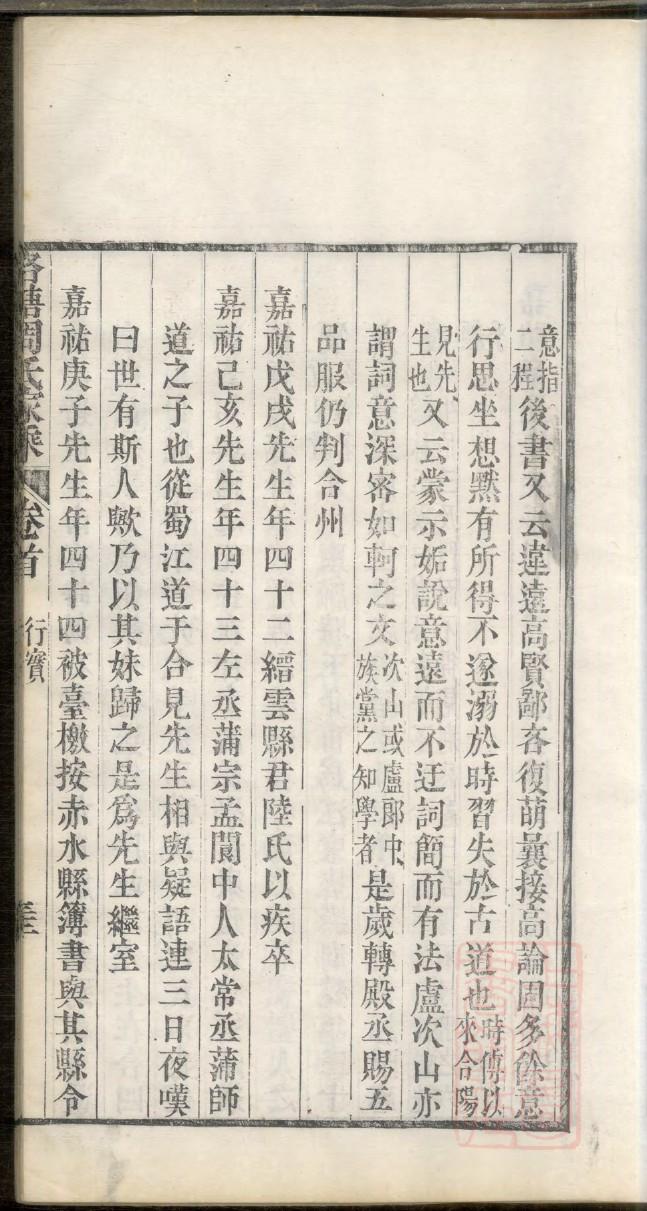 意指二程後書又云違遠高賢鄙吝復萌曩接高論固多餘意
行思坐想默有所得不遂溺於時習失於古道也時傅以來合陽
見先生也又云蒙示姤說意遠而不迂詞簡而有法盧次山亦
謂詞意深密如軻之文次山或盧郎中族黨之知學者是歲轉殿丞賜五
品服仍判合州
嘉祐戊戌先生年四十二縉雲縣君陸氏以疾卒
嘉祐己亥先生年四十三左丞蒲宗孟閬中人太常丞蒲師
道之子也從蜀江道于合見先生相與疑語連三日夜嘆
曰世有斯人歟乃以其妹歸之是爲先生繼室
嘉祐庚子先生年四十四被臺檄按赤水縣簿書與其縣令
周氏家乘 卷首 行實